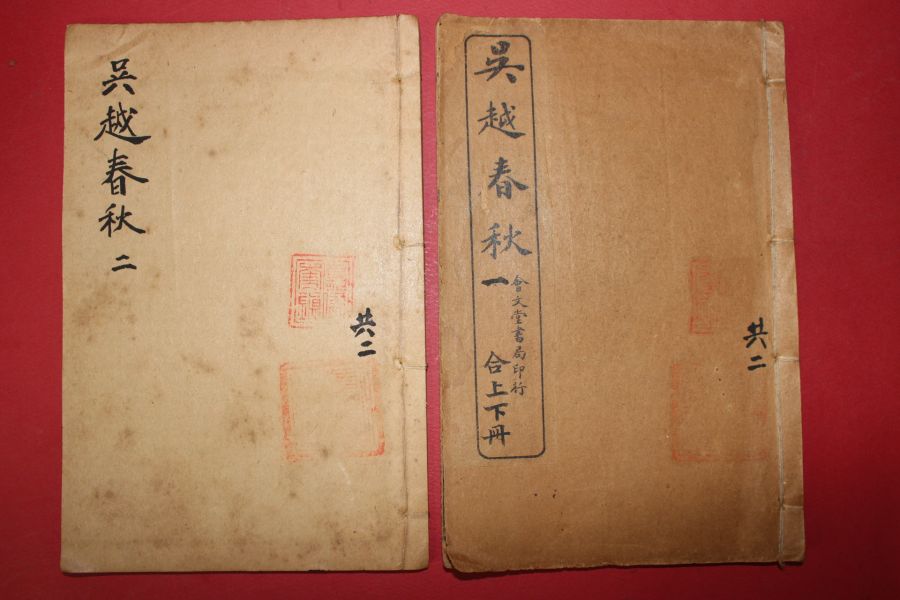 吳越春秋
一
會文堂書局印行
合上下冊
共二
吳越春秋二
共二